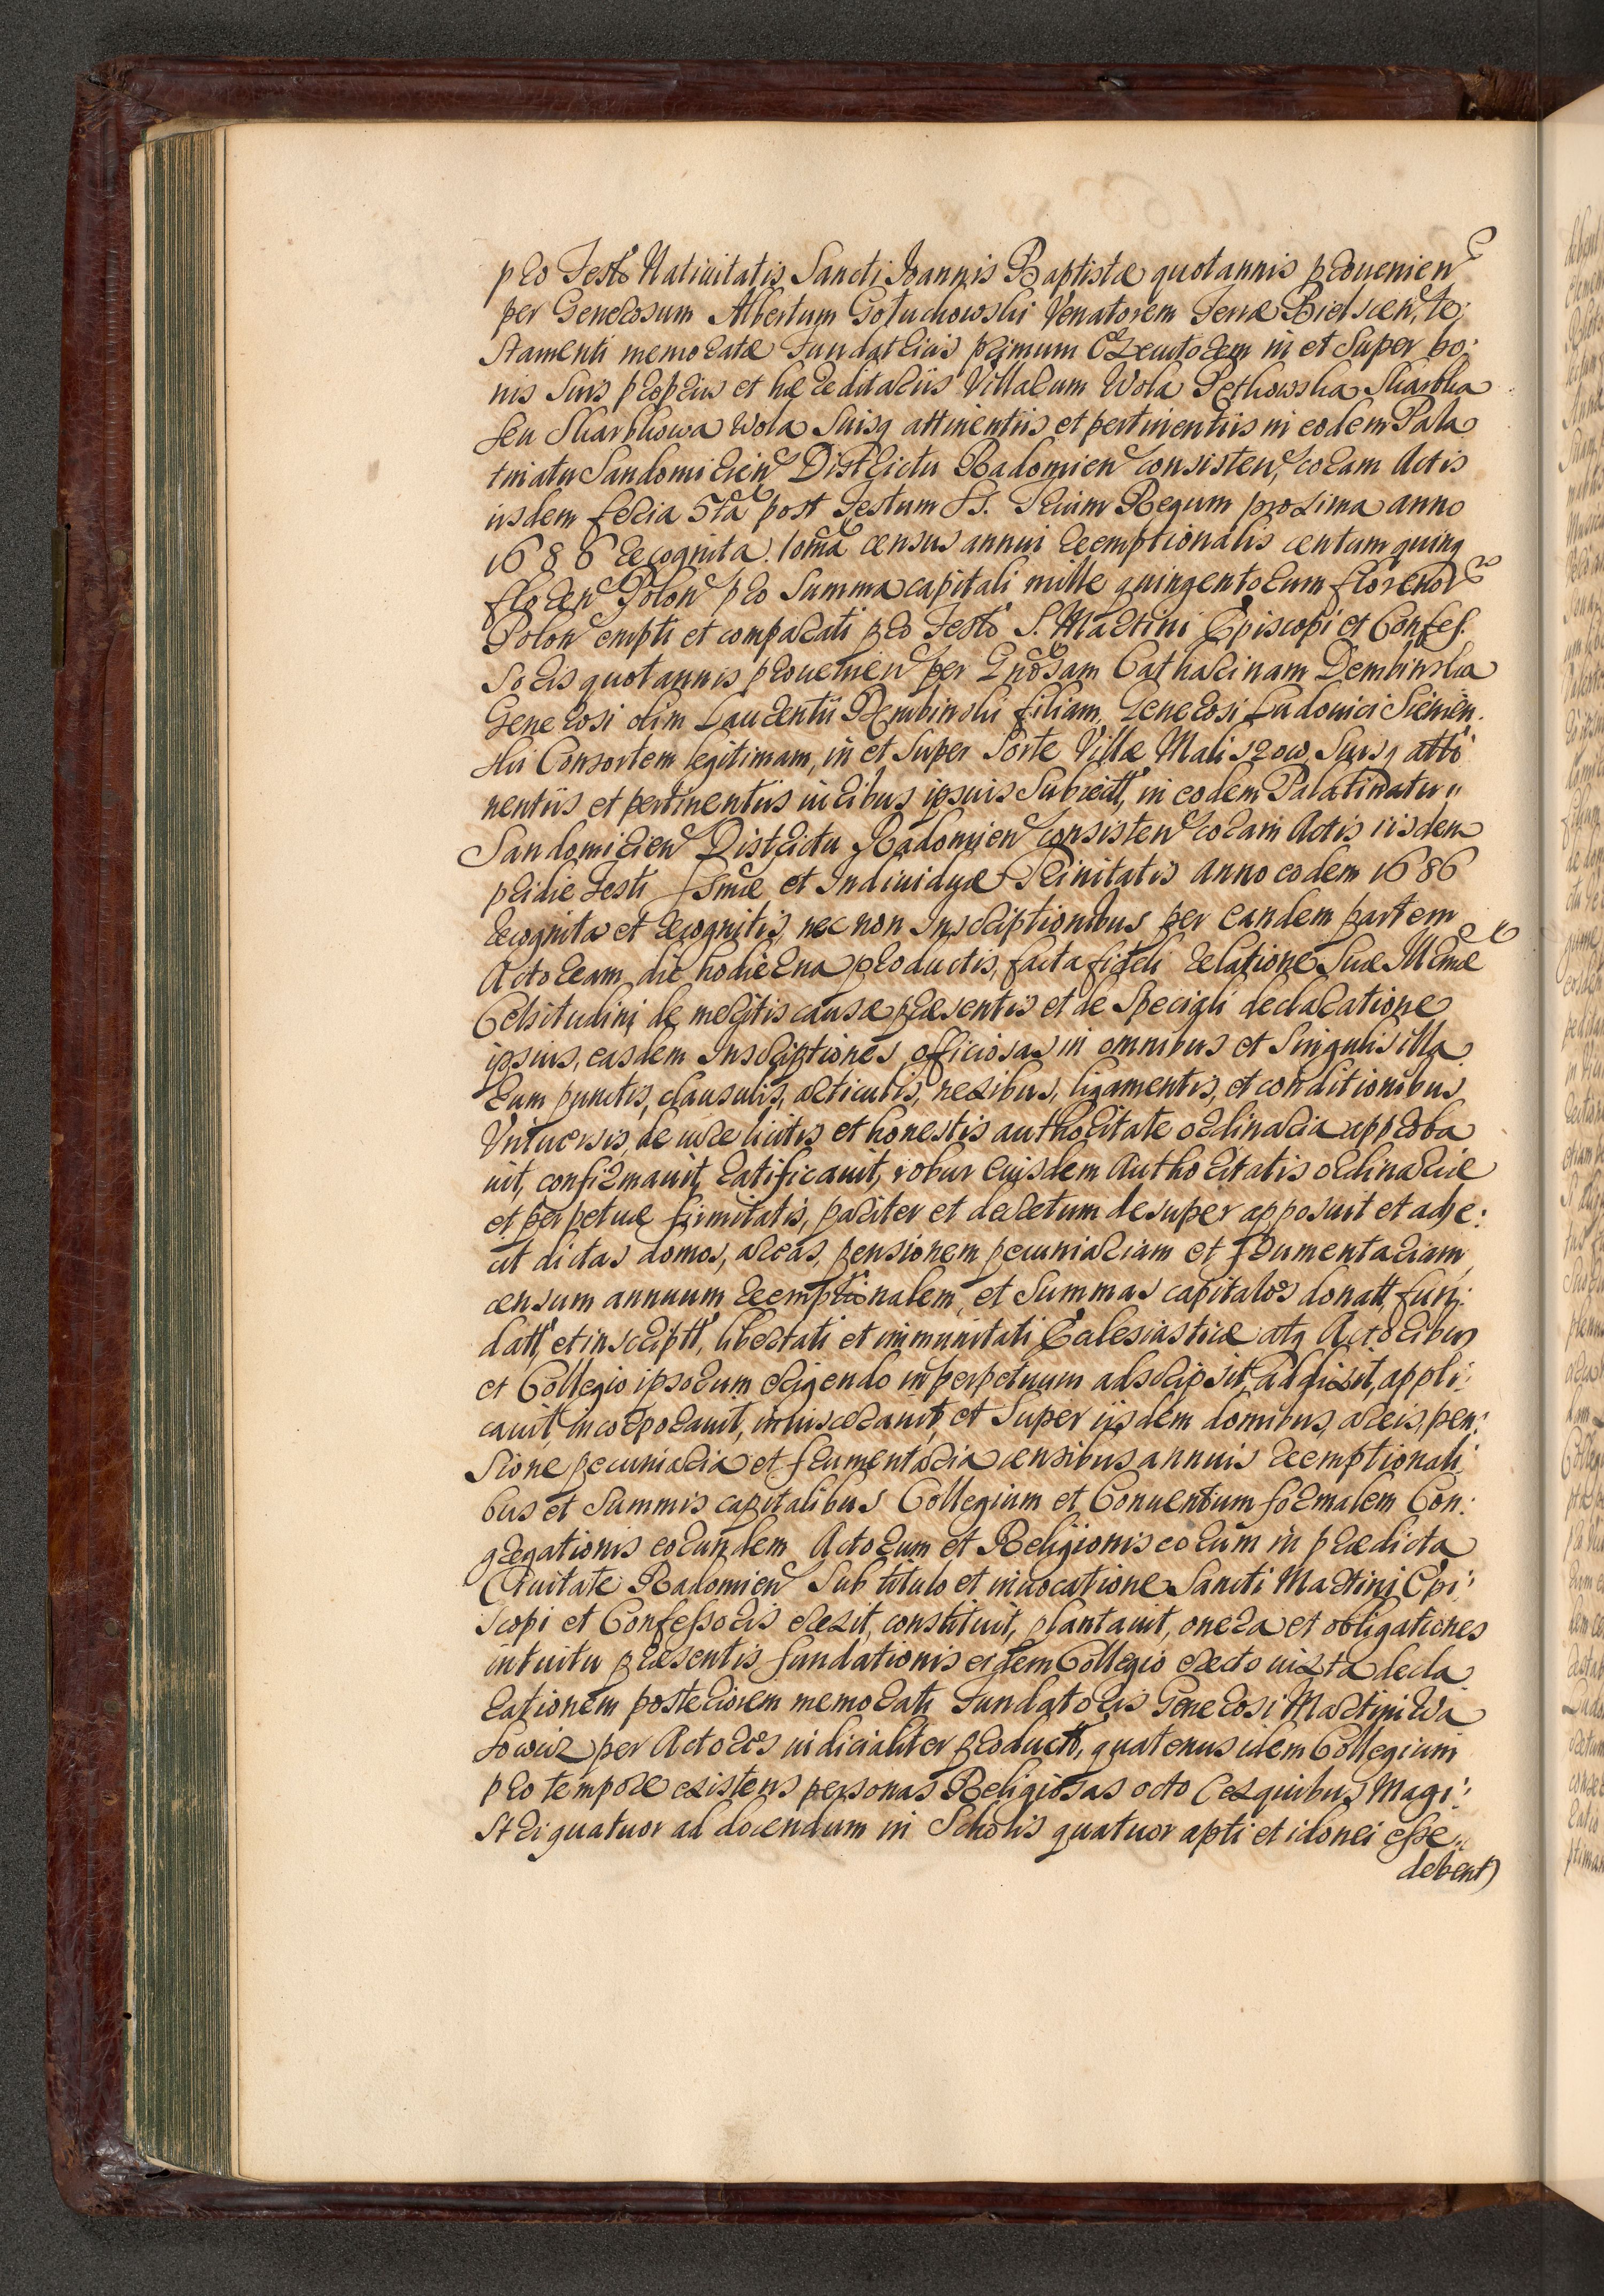 pro Festo Natiuitatis Sancti Joannis Baptistæ quotannis prouenien
per Generosum Albertum Gołuchowski Venatorem Terræ Bielscen, te:
stamenti memoratæ Fundatricis primum Executorem in et super bo:
nis suis proprius et hæreditariis Villarum Wola Pethowska Skarbka
seu Skarbkowa Wola suisq attinentiis et pertinentiis in eodem Pala
tinatu Sandomirien Districtu Radomien consisten, coram Actis
iisdem feria 5ta post Festum SS. Trium Regum proxima anno
1686 recognita. 10mo census annui reemptionalis centum quinq
floren Polon pro Summa capitali mille quingentorum florenor
Polon empti et comparati pro Festo S. Martini Episcopi et Confes.
soris quotannis prouenien per Gnosam Catharinam Dembinska
Generosi olim Laurentii Dembinski filiam, Generosi Ludouici Sienien.
ski Consortem legitimam, in et super Sorte Villæ Maliszow, suisq atti
nentiis et pertinentiis iuribus ipsius subiectt, in eodem Palatinatu
Sandomirien Districtu Radomien consisten coram Actis iisdem
pridie Festi Ssmæ et Indiuiduæ Trinitatis anno eodem 1686
recognita et recognitis, nec non Inscriptionibus per eandem partem
Actoream die hodierna productis, facta fideli relatione Suæ Illmæ
Celsitudini de meritis causæ præsentis et de speciali declaratione
ipsius, easdem Inscriptiones officiosas in omnibus et singulis illa
rum punctis, clausulis, articulis, nexibus, ligamentis, et conditionibus
Vniuersis, de iure licitis et honestis authoritate ordinaria approba
uit, confirmauit, ratificauit, robur eiusdem Authoritatis ordinariæ
et perpetuæ firmitatis, pariter et decretum desuper apposuit et adje:
cit dictas domos, areas, pensionem pecuniariam et frumentariam,
censum annuum reemptionalem, et Summas capitales donatt, fun:
datt, et inscriptt, libertati et immunitati Ecclesiasticæ atq Actoribus
et Collegio ipsorum erigendo in perpetuum adscripsit, addixit, appli:
cauit, incorporauit, inuiscerauit, et super iisdem domibus, areis, pen:
sione pecuniaria et frumentaria censibus annuis reemptionali:
bus et Summis capitalibus Collegium et Conuentum formalem Con:
gregationis eorundem Actorum et Religionis eorum in prædicta
Ciuitate Radomien sub titulo et inuocatione Sancti Martini Epi:
scopi et Confessoris erexit, constituit, plantauit, onera et obligationes
intuitu præsentis fundationis eidem Collegio erecto iuxta decla
rationem posteriorem memorati Fundatoris Generosi Martini Wa
sowicz per Actores iudicialiter productt, quatenus idem Collegium
pro tempore existens personas Religiosas octo (ex quibus Magi:
stri quatuor ad docendum in Scholis quatuor apti et idonei esse
debent)